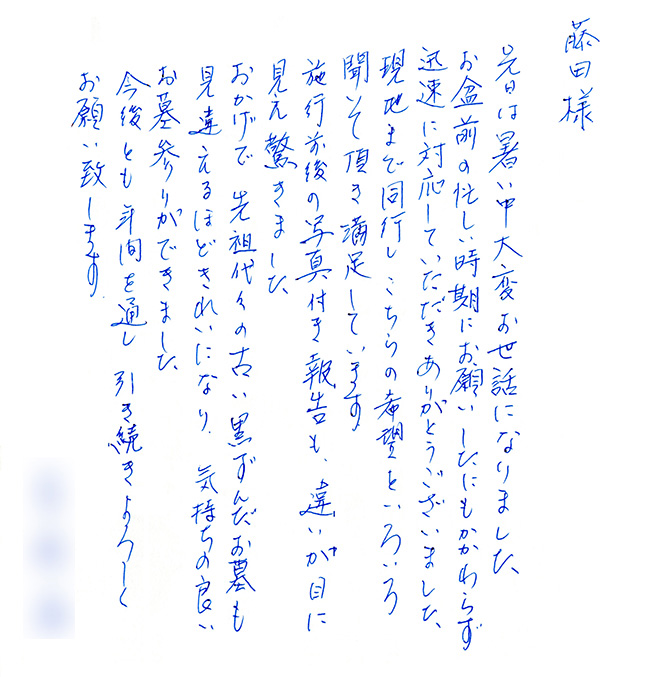 藤田様
先日は暑い中大変お世話になりました、
お盆前の忙しい時期にお願いしたにもかかわらず
迅速に対応していただきありがとうございました、
現地まで同行しこちらの希望をいろいろ
聞いて頂き満足しています
施行前後の写真付き報告も、違いが目に
見え驚きました、
おかげで 先祖代々の古い黒ずんだお墓も
見違えるほどきれいになり、気持ちの良い
お墓参りができました、
今後とも年間を通し引き続きよろしく
お願い致します